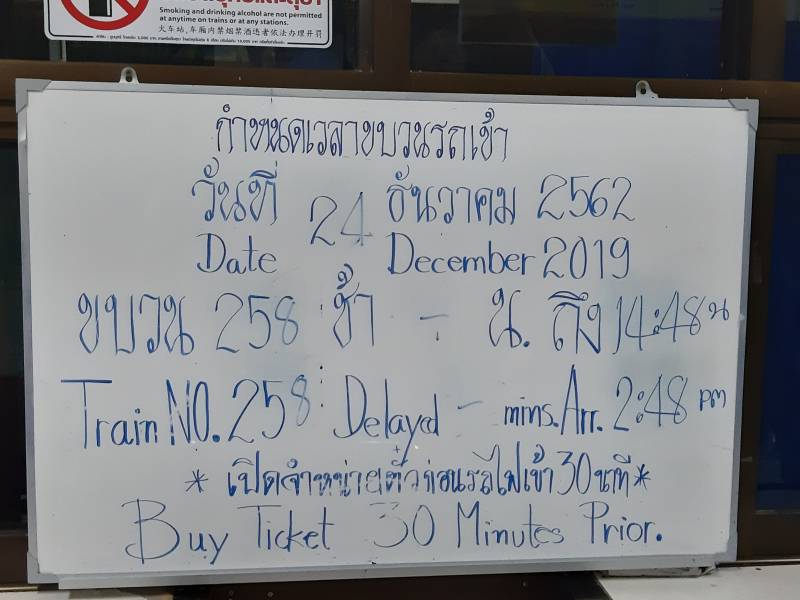 Smoking and drinking alcohol are not permitted
at anytime on trains or at any stations.
火车站,车厢内禁烟禁酒违者依法办理开罚
กำหนดเวลาขบวนรถเข้า
วันที่ 24 ธันวาคม 2562
Date December 2019
ขบวน 258 ช้า - น. ถึง 14:48 น
Train NO. 258 Delayed - mins. Arr. 2:48 pm
* เปิดจำหน่ายตั๋วก่อนรถไฟเข้า 30 นาที *
Buy Ticket 30 Minutes Prior.